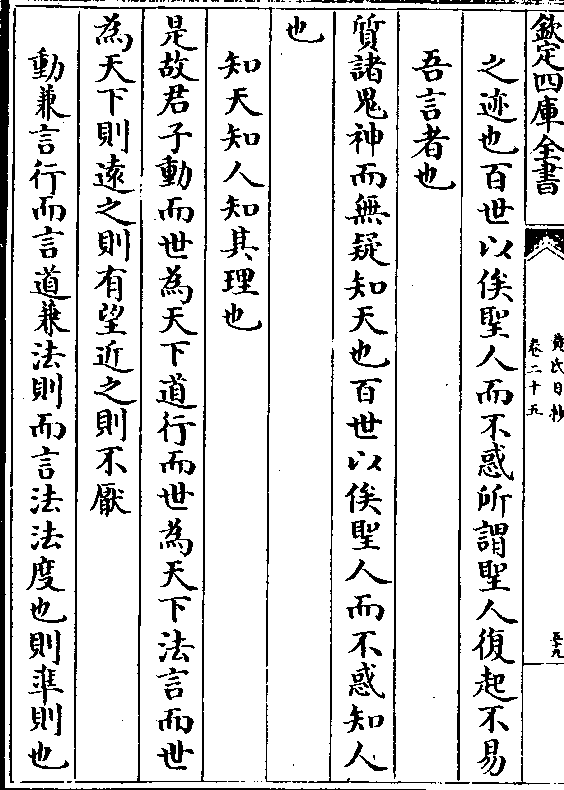 欽定四庫全書
黃氏日抄
卷二十五
五十九
之迹也百世以俟聖人而不惑所謂聖人復起不易
吾言者也
質諸鬼神而無疑知天也百世以俟聖人而不惑知人
也
知天知人知其理也
是故君子動而世為天下道行而世為天下法言而世
為天下則遠之則有望近之則不厭
動兼言行而言道兼法則而言法法度也則準則也